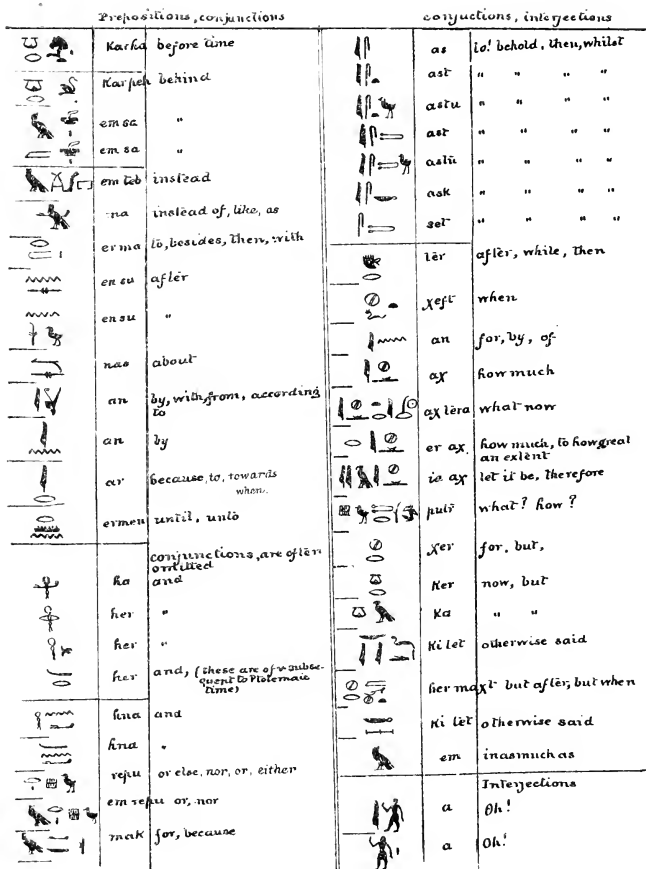 Prepositions, conjunctions
Karka before time
Karpeh behind
em sa "
em sa "
em teb instead
na instead of, like, as
er ma to, besides, then, with
en su after
en su "
nas about
an by, with, from, according
to
an by
ar because, to, towards
when.
ermen until, unto
conjunctions, are often
omitted
ha and
her "
her "
her and, (these are of subse-
quent to Ptolemaic
time)
hna and
hna "
repu or else, nor, or, either
em repu or, nor
mak for, because
conjuctions, interjections
as lo! behold, then, whilst
ast " " " "
astu " " " "
ast " " " "
astu " " " "
ask " " " "
set " " " "
ter after, while, then
xeft when
an for, by, of
ax how much
ax tera what now
er ax. how much, to how great
an extent
ie ax let it be, therefore
putr what? how?
xer for, but,
Ker now, but
Ka " "
Ki tet otherwise said
her maxt but after, but when
Ki tet otherwise said
em inasmuch as
Interjections
a Oh!
a Oh!